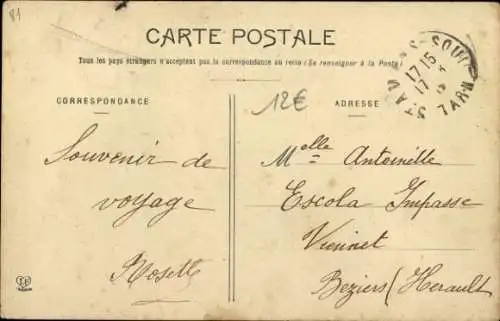 81
CARTE POSTALE
Tous les pays étrangers n'acceptent pas la correspondance au recto (Se renseigner à la Poste)
CORRESPONDANCE
12€
ADRESSE
17 15
17
TARN
Souvenir de
voyage
Rosette
Melle Antoinette
Escola Impasse
Viennet
Beziers (Herault